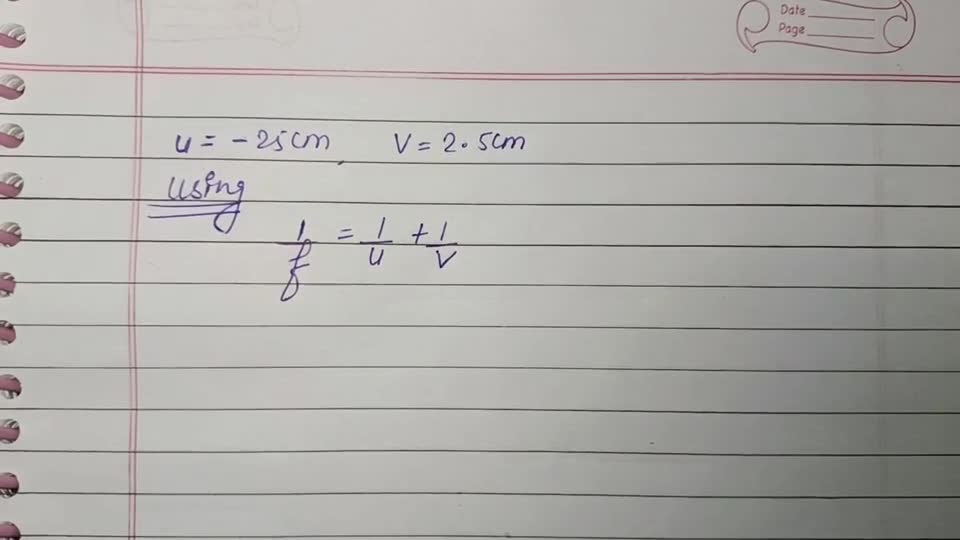 Date
Page
u = - 25 cm V = 2.5 cm
using
1/f = 1/u + 1/v